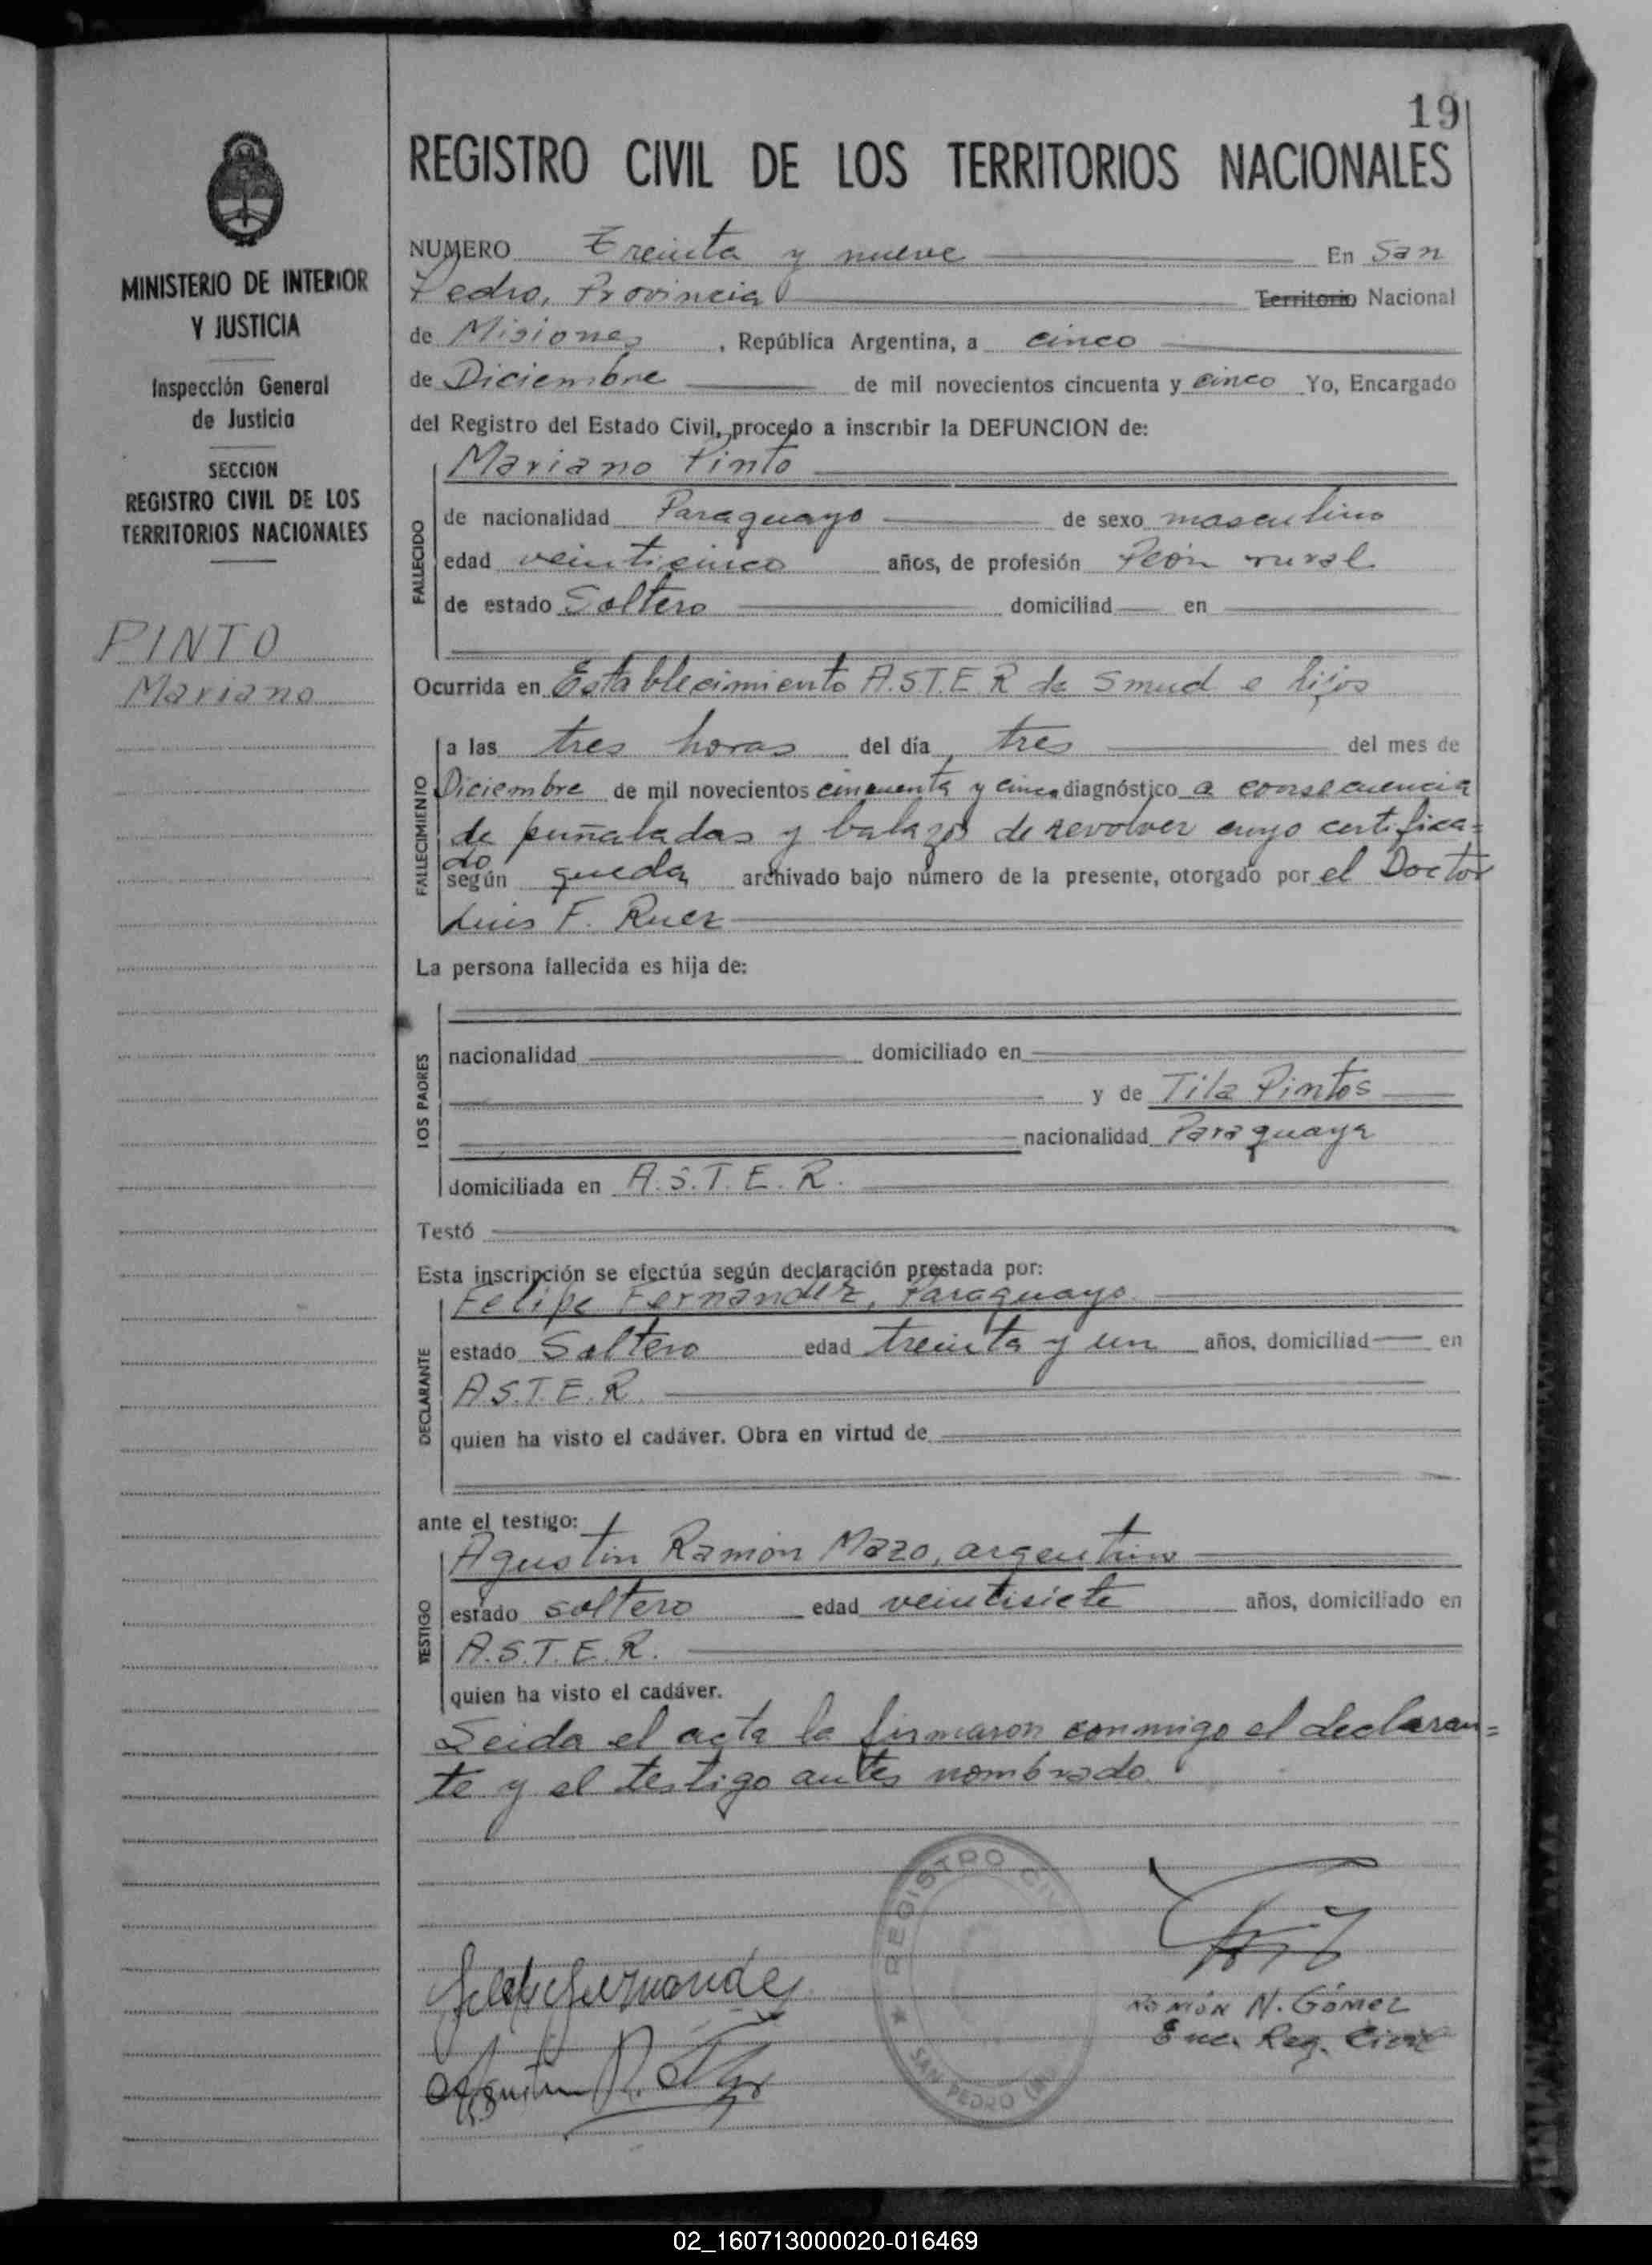 19
REGISTRO CIVIL DE LOS TERRITORIOS NACIONALES
MINISTERIO DE INTERIOR
Y JUSTICIA
Inspección General
de Justicia
SECCION
REGISTRO CIVIL DE LOS
TERRITORIOS NACIONALES
PINTO
Mariano
NUMERO Treinta y nueve En San
Pedro, Provincia Territorio Nacional
de Misiones, República Argentina, a cinco
de Diciembre de mil novecientos cincuenta y cinco Yo, Encargado
del Registro del Estado Civil, procedo a inscribir la DEFUNCION de:
Mariano Pinto
FALLECIDO
de nacionalidad Paraguayo de sexo masculino
edad veinticinco años, de profesión Peón rural
de estado Soltero domiciliad en
Ocurrida en Establecimiento A.S.T.E.R de Smud e hijos
FALLECIMIENTO
a las tres horas del día tres del mes de
Diciembre de mil novecientos cincuenta y cinco diagnóstico a consecuencia
de puñaladas y balazos de revolver cuyo certifica=
do
según queda archivado bajo número de la presente, otorgado por el Doctor
Luis F. Ruez
La persona fallecida es hija de:
LOS PADRES
nacionalidad domiciliado en
y de Tila Pintos
nacionalidad Paraguaya
domiciliada en A.S.T.E.R.
Testó
Esta inscripción se efectúa según declaración prestada por:
Felipe Fernandez, Paraguayo
DECLARANTE
estado Soltero edad treinta y un años, domiciliad en
A.S.T.E.R.
quien ha visto el cadáver. Obra en virtud de
ante el testigo:
Agustin Ramón Mazo, argentino
TESTIGO
estado soltero edad veintisiete años, domiciliado en
A.S.T.E.R.
quien ha visto el cadáver.
Leida el acta la firmaron conmigo el declaran=
te y el testigo antes nombrado.
REGISTRO CIVIL
SAN PEDRO
Felipe Fernandez
RAMÓN N. GÓMEZ
Enc. Reg. Civil
02_160713000020-016469